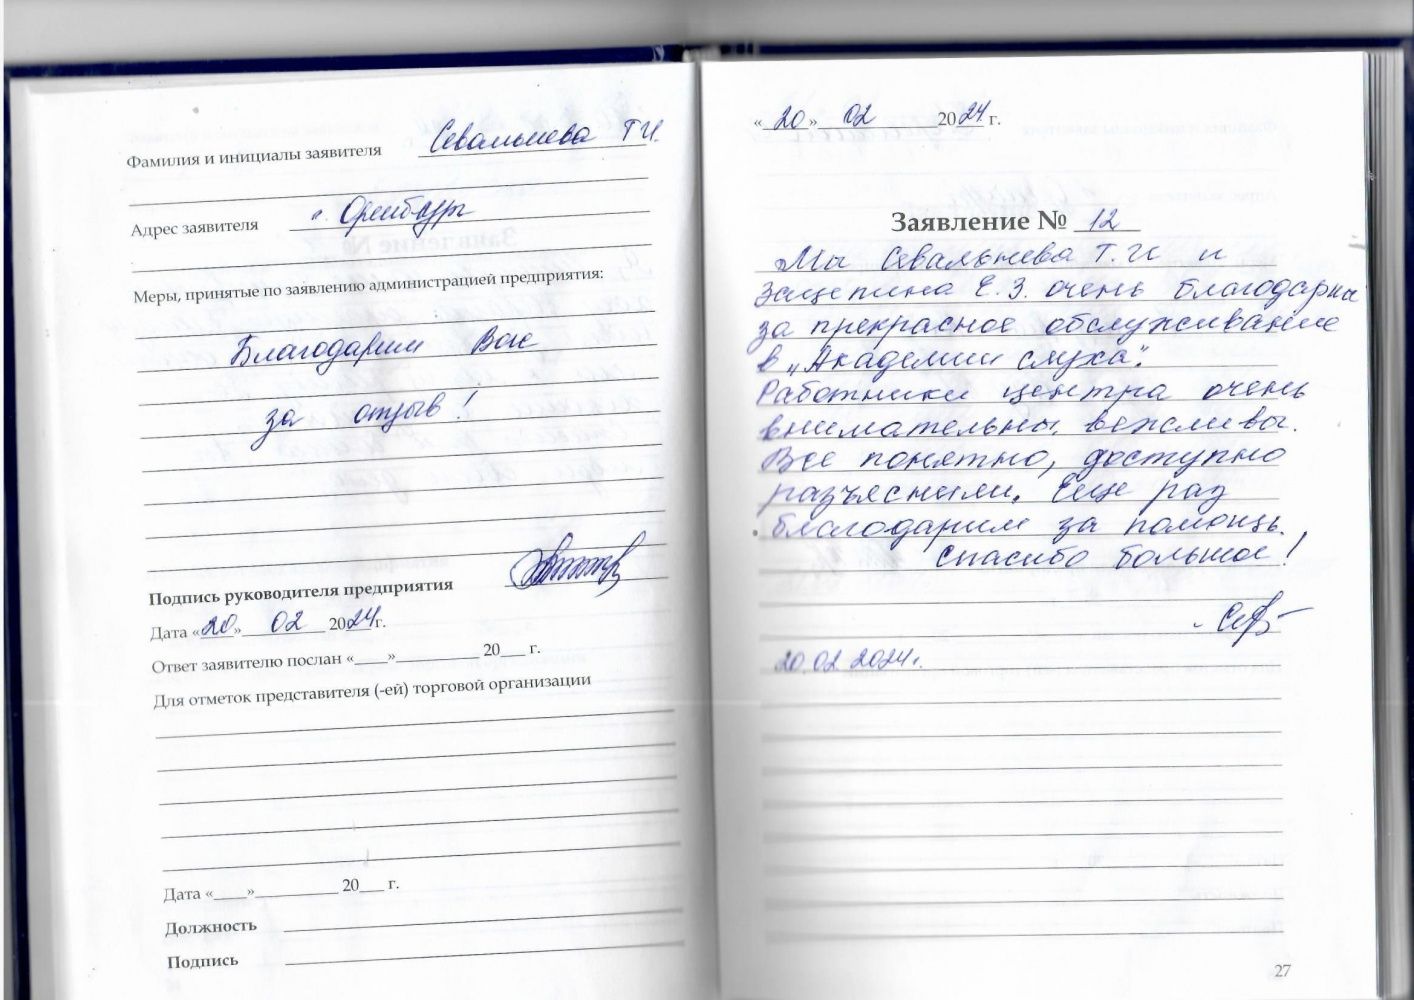 Фамилия и инициалы заявителя Севальнева Т.И.
Адрес заявителя г. Оренбург
Меры, принятые по заявлению администрацией предприятия:
Благодарим Вас
за отзыв!
Подпись руководителя предприятия
Дата «20» 02 2024г.
Ответ заявителю послан «___»_________ 20___ г.
Для отметок представителя (-ей) торговой организации
Дата «___»_________ 20___ г.
Должность
Подпись
«20» 02 2024 г.
Заявление № 12
Мы Севальнева Т.И и
Защепина Е.З. очень благодарны
за прекрасное обслуживание
в „Академии слуха".
Работники центра очень
внимательны, вежливы.
Все понятно, доступно
разъяснили. Еще раз
благодарим за помощь.
Спасибо большое!
20.02.2024г.
27